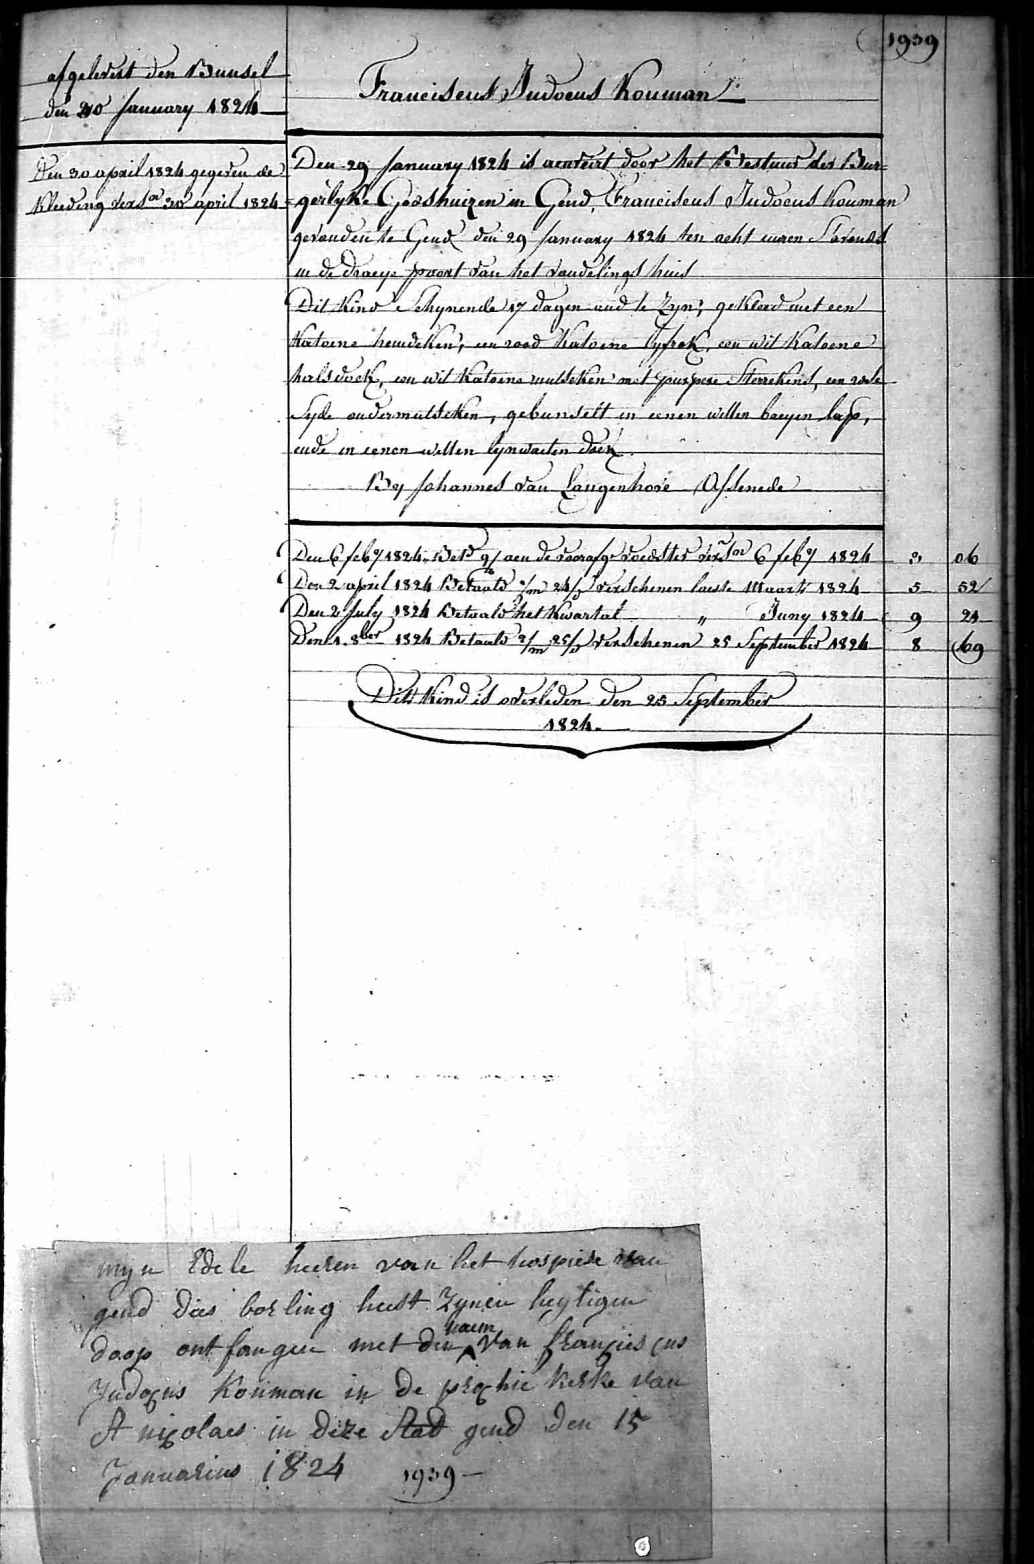 1939
afgelevert den Bunsel
den 30 January 1824
Franciscus Judocus Kouman
Den 30 april 1824 gegeven de
Kleeding vers.en 30 april 1824
Den 29 January 1824 is aenveirt door het Bestuur der Bur=
=gerlyke Godshuizen in Gend, Franciscus Judocus Kouman
gevonden te Gend den 29 January 1824 ten acht uuren S'avonds
in de draeye poort van het vondelings huis
Dit Kind Schynende 17 dagen oud te Zyn; gekleed met een
Katoene hemdeken, een rood Katoene lyfrok, een wit Katoene
halsdoek, een wit Katoene mutseken met purpere Sterrekens, een rose
Syde ondermutseken, gebunselt in eenen witten baeyen lap,
ende in eenen witten lynwaeten doek
By Johannes van Langenhove Assenede
Den 6 feb.y 1824 Bet.d aen de voorafg. voedster vers.en 6 feb.y 1824 3 06
Den 2 april 1824 Betaald 1/m 24/d verschenen laeste Maart 1824 5 52
Den 2 July 1824 Betaald het Kwartal " Juny 1824 9 21
Den 1. 8ber 1824 Betaald 2/m 25/d verschenen 25 September 1824 8 69
Dit Kind is overleden den 25 September
1824.
myn Edele heeren van het hospiese van
gend dees borling heeft Zynen heyligen
doop ontfangen met den naem van françiesçus
Judoçus Kouman in de proçhie kerke van
St niçolaes in deze stad gend den 15
Januarius 1824 1939